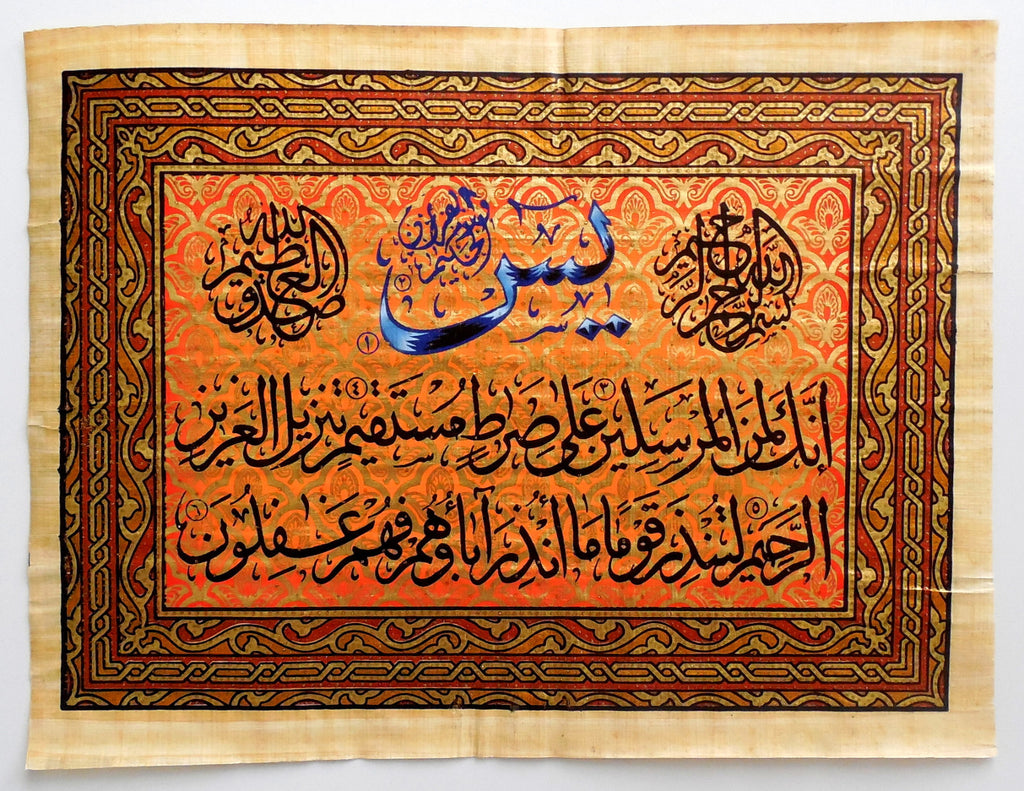 بسم الله الرحمن الرحيم
يس ١
والقرآن الحكيم ٢
صدق الله العظيم
إنك لمن المرسلين ٣ على صرط مستقيم ٤ تنزيل العزيز
الرحيم ٥ لتنذر قوما ما أنذر آباؤهم فهم غفلون ٦